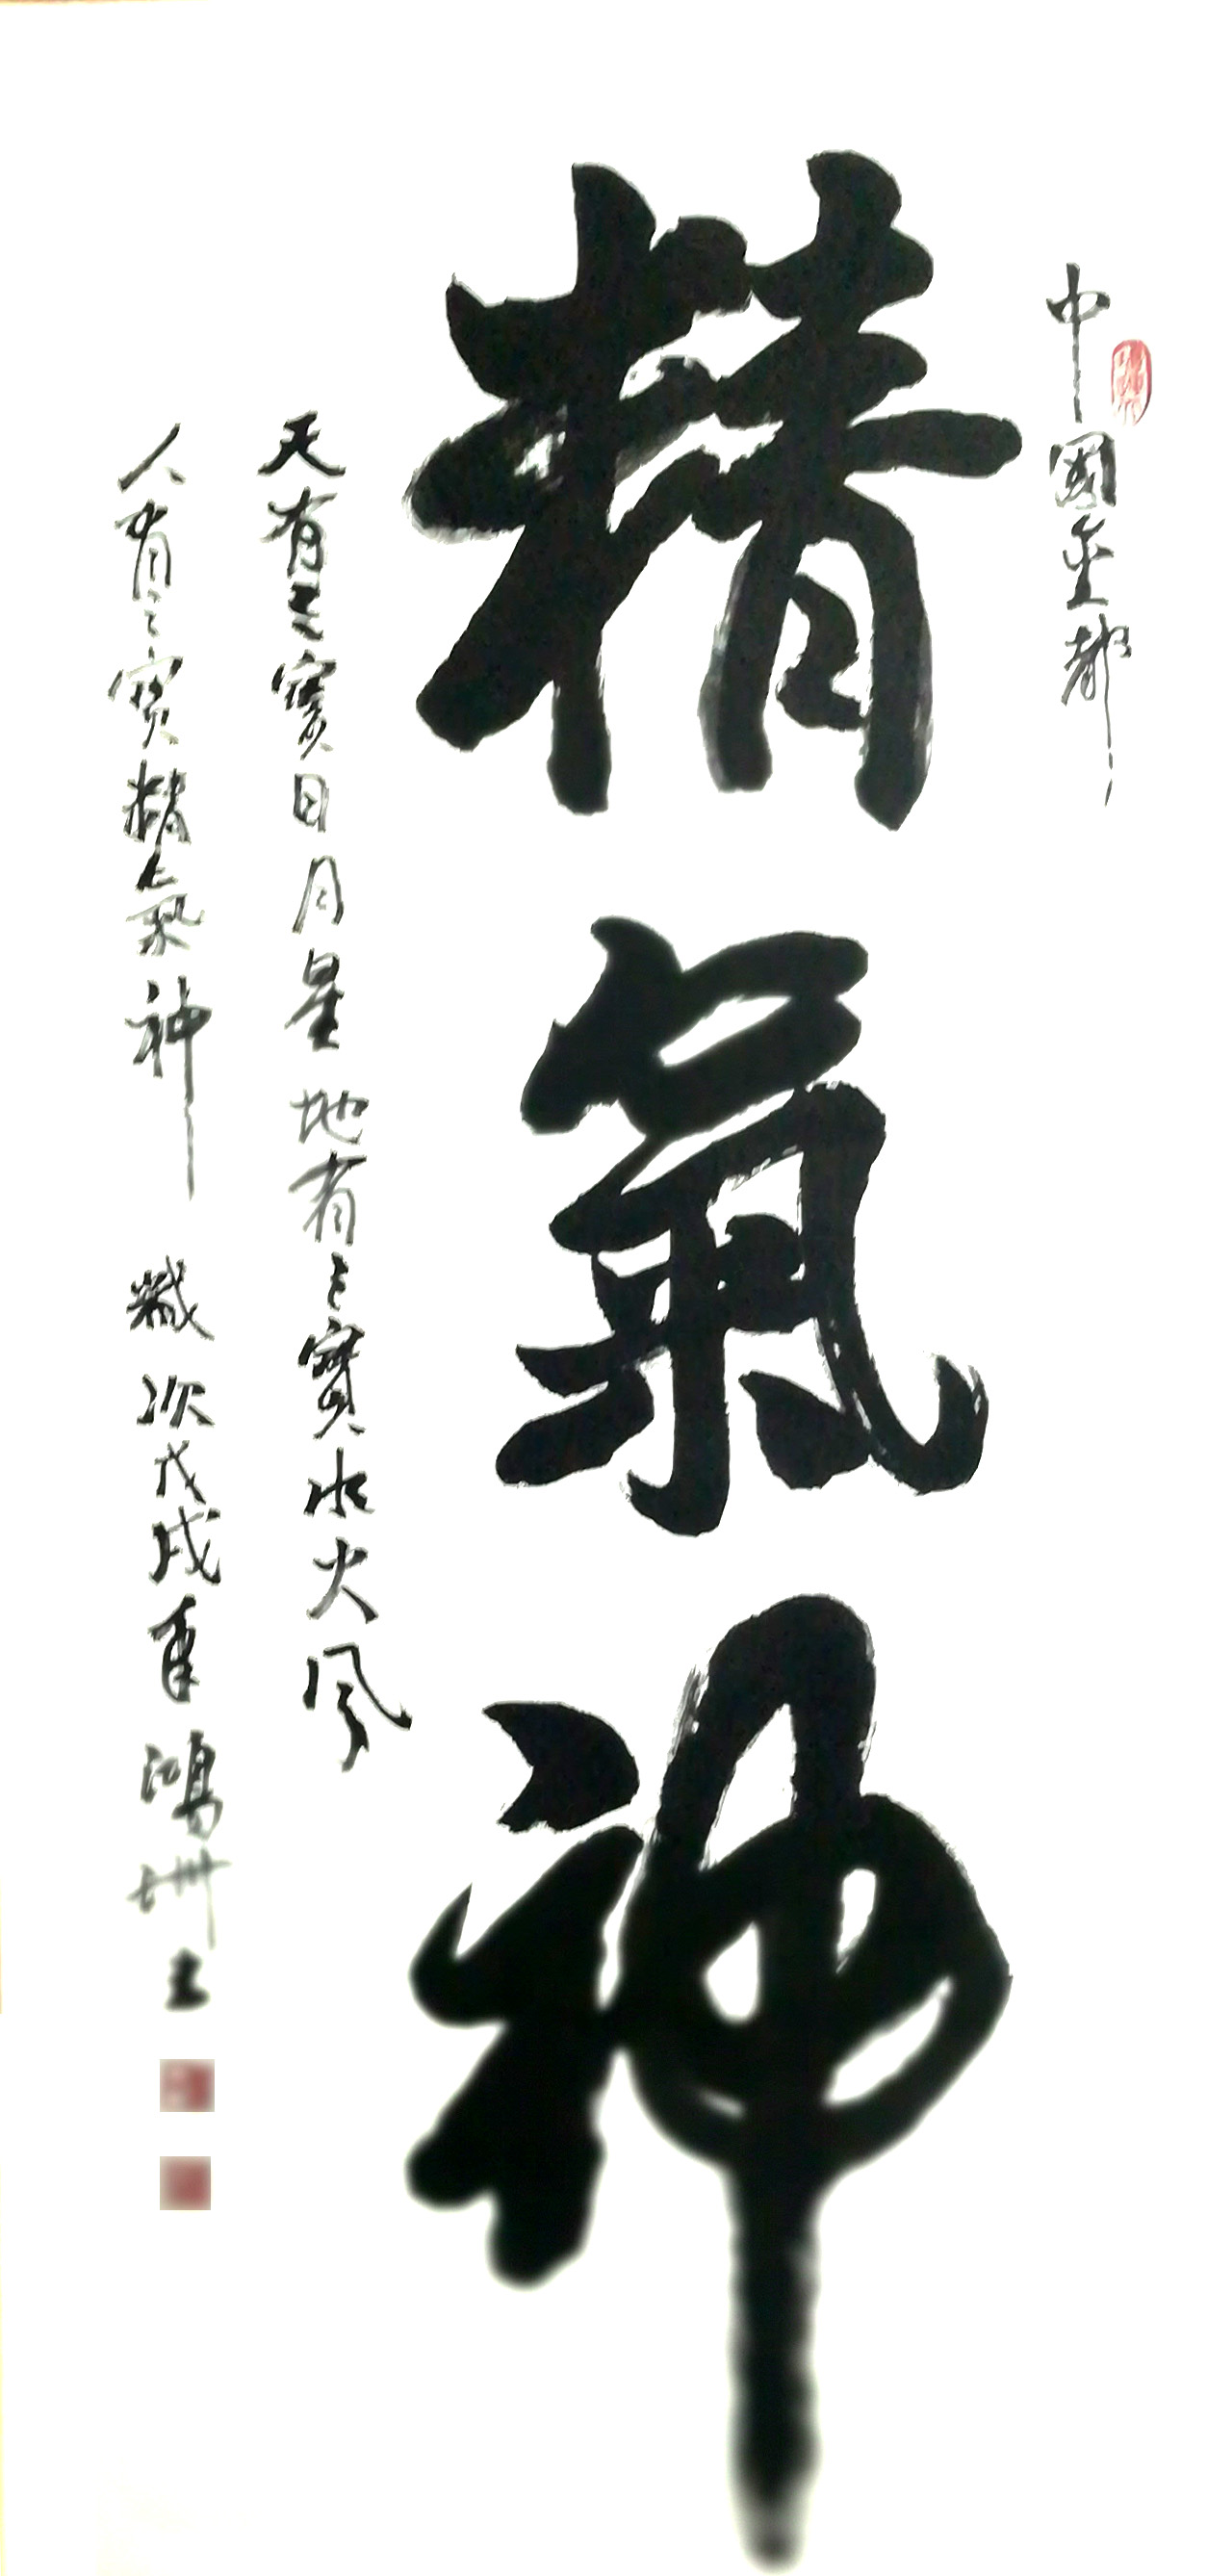 中國金都
精氣神
天有三寶日月星地有三寶水火風
人有三寶精氣神 歲次戊戌年鴻洲書